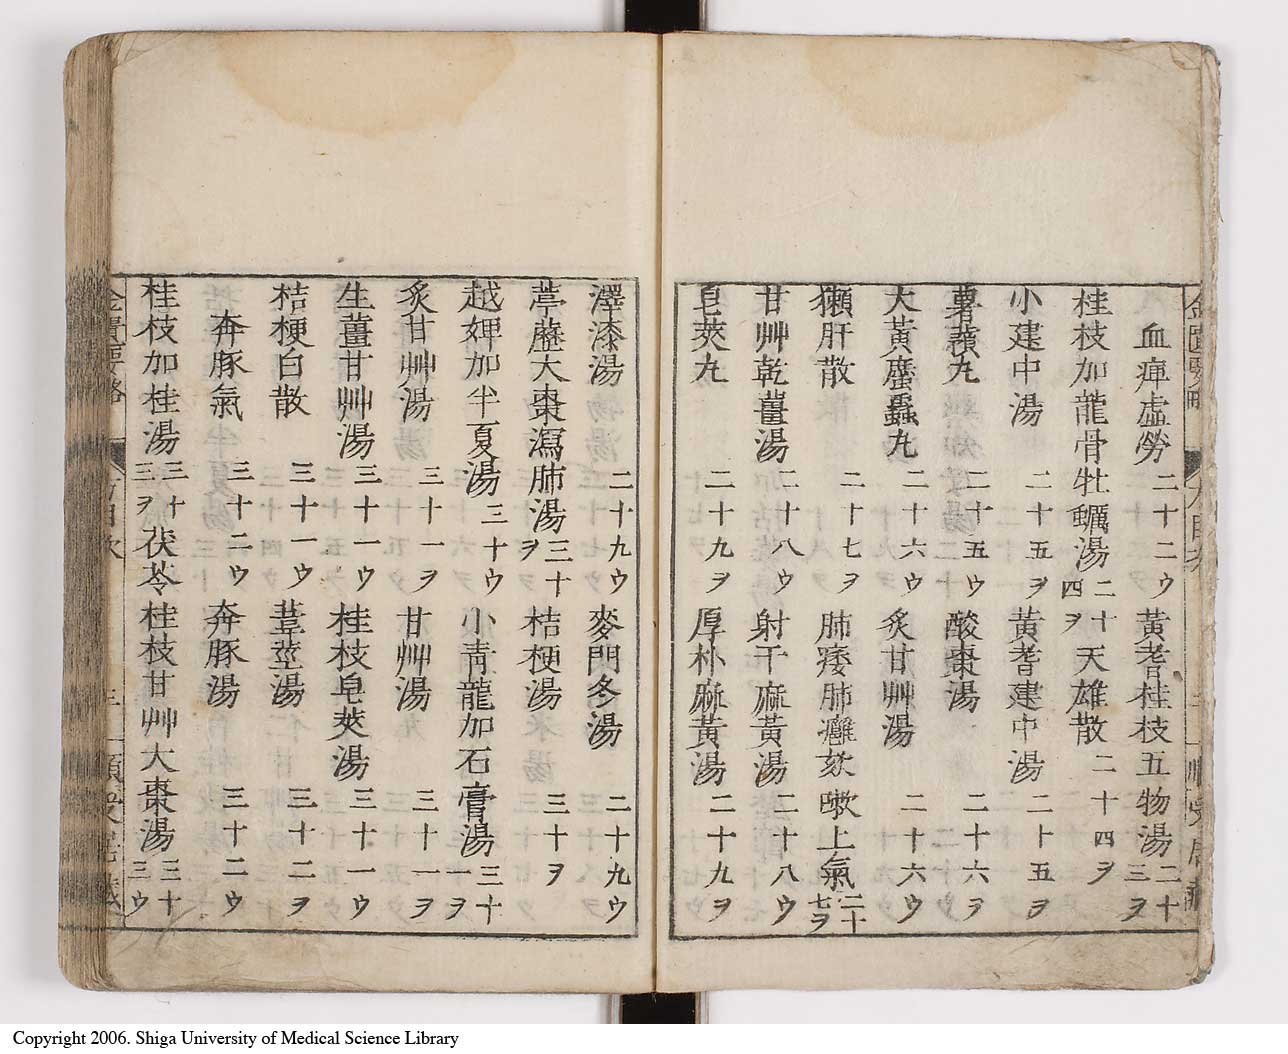 血痺虛勞 二十二ウ 黃耆桂枝五物湯 二十三ヲ
桂枝加龍骨牡蠣湯 二十四ヲ 天雄散 二十四ヲ
小建中湯 二十五ヲ 黃耆建中湯 二十五ヲ
薯蕷丸 二十五ウ 酸棗湯 二十六ヲ
大黃䗪蟲丸 二十六ウ 炙甘艸湯 二十六ウ
獺肝散 二十七ヲ 肺痿肺癰欬嗽上氣 二十七ヲ
甘艸乾薑湯 二十八ウ 射干麻黃湯 二十八ウ
皂莢丸 二十九ヲ 厚朴麻黃湯 二十九ヲ
澤漆湯 二十九ウ 麥門冬湯 二十九ウ
葶藶大棗瀉肺湯 三十ヲ 桔梗湯 三十ヲ
越婢加半夏湯 三十ウ 小靑龍加石膏湯 三十一ヲ
炙甘艸湯 三十一ヲ 甘艸湯 三十一ヲ
生薑甘艸湯 三十一ウ 桂枝皂莢湯 三十一ウ
桔梗白散 三十一ウ 葦莖湯 三十二ヲ
奔豚氣 三十二ウ 奔豚湯 三十二ウ
桂枝加桂湯 三十三ヲ 茯苓桂枝甘艸大棗湯 三十三ウ
金匱要略
Copyright 2006. Shiga University of Medical Science Library